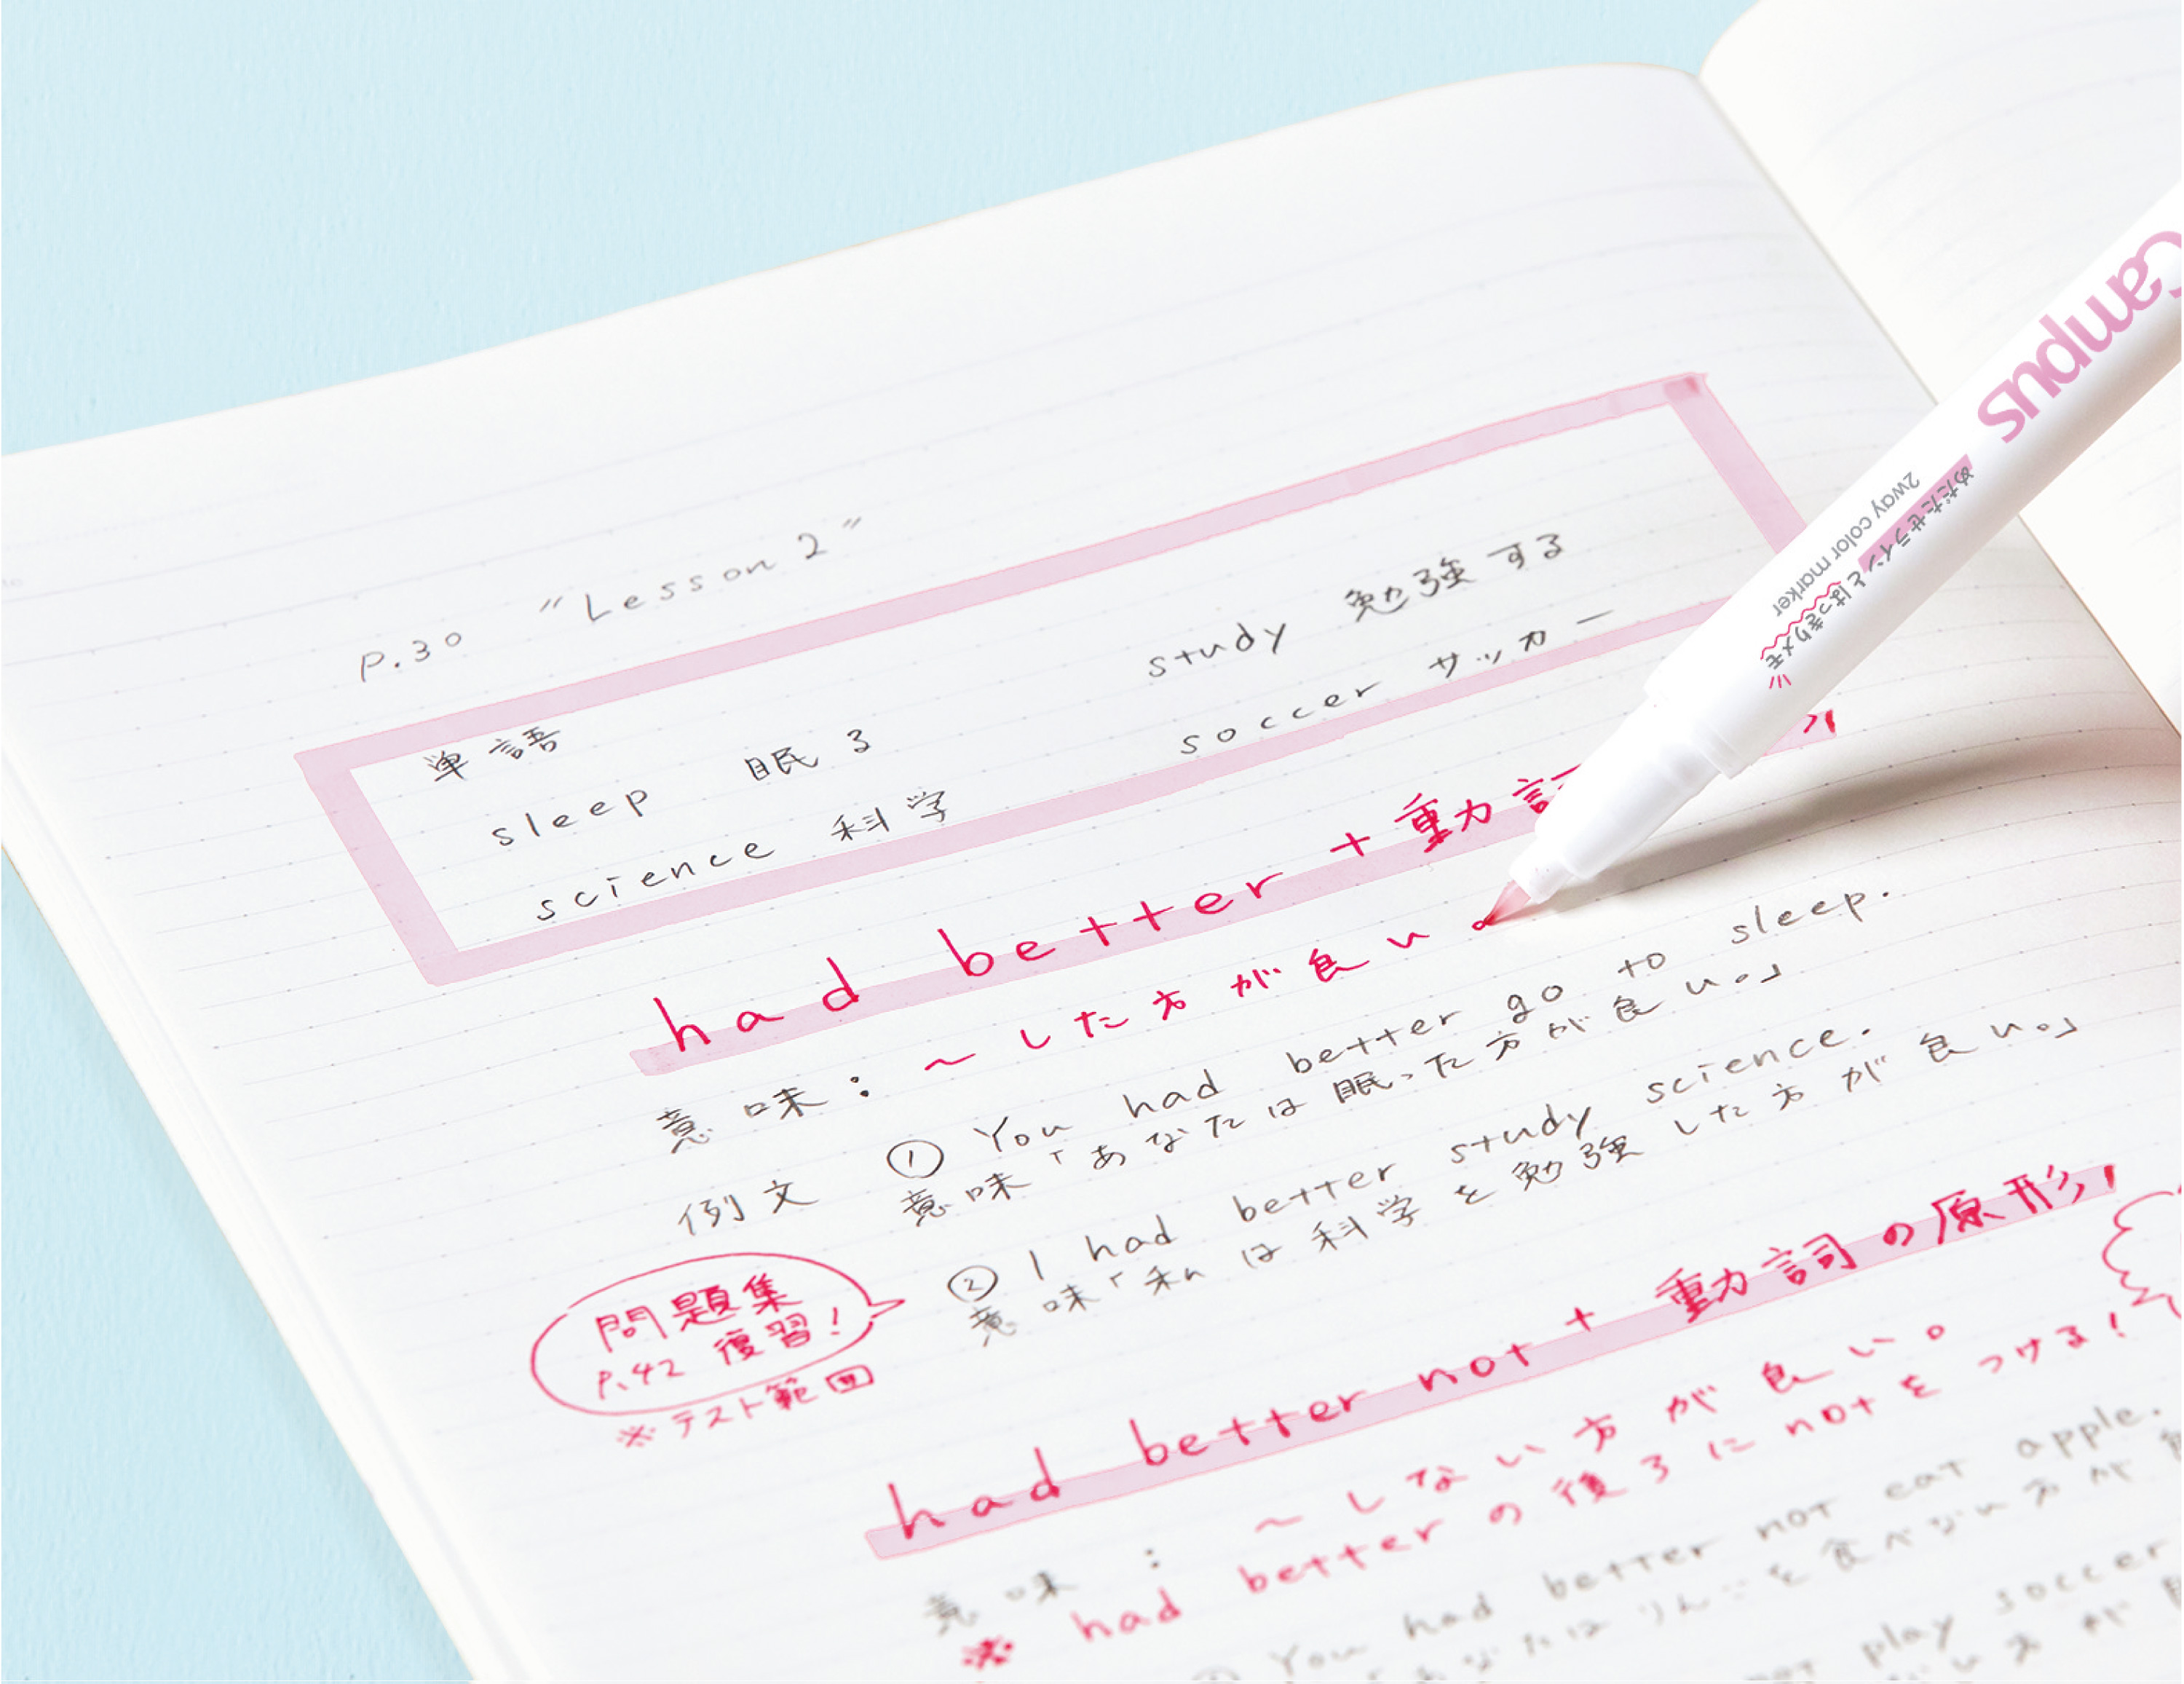 P.30 "Lesson 2"
単語
sleep 眠る
study 勉強する
science 科学
soccer サッカー
had better + 動詞
意味: 〜した方が良い。
例文 ① You had better go to sleep.
意味「あなたは眠った方が良い。」
② I had better study science.
意味「私は科学を勉強した方が良い。」
問題集
P.42 復習!
※テスト範囲
had better not + 動詞の原形
意味: 〜しない方が良い。
※ had betterの後ろにnotをつける!
You had better not eat apple.
あなたはりんごを食べない方が
not play soccer
Campus
めだたせラインとはっきりメモ
2way color marker